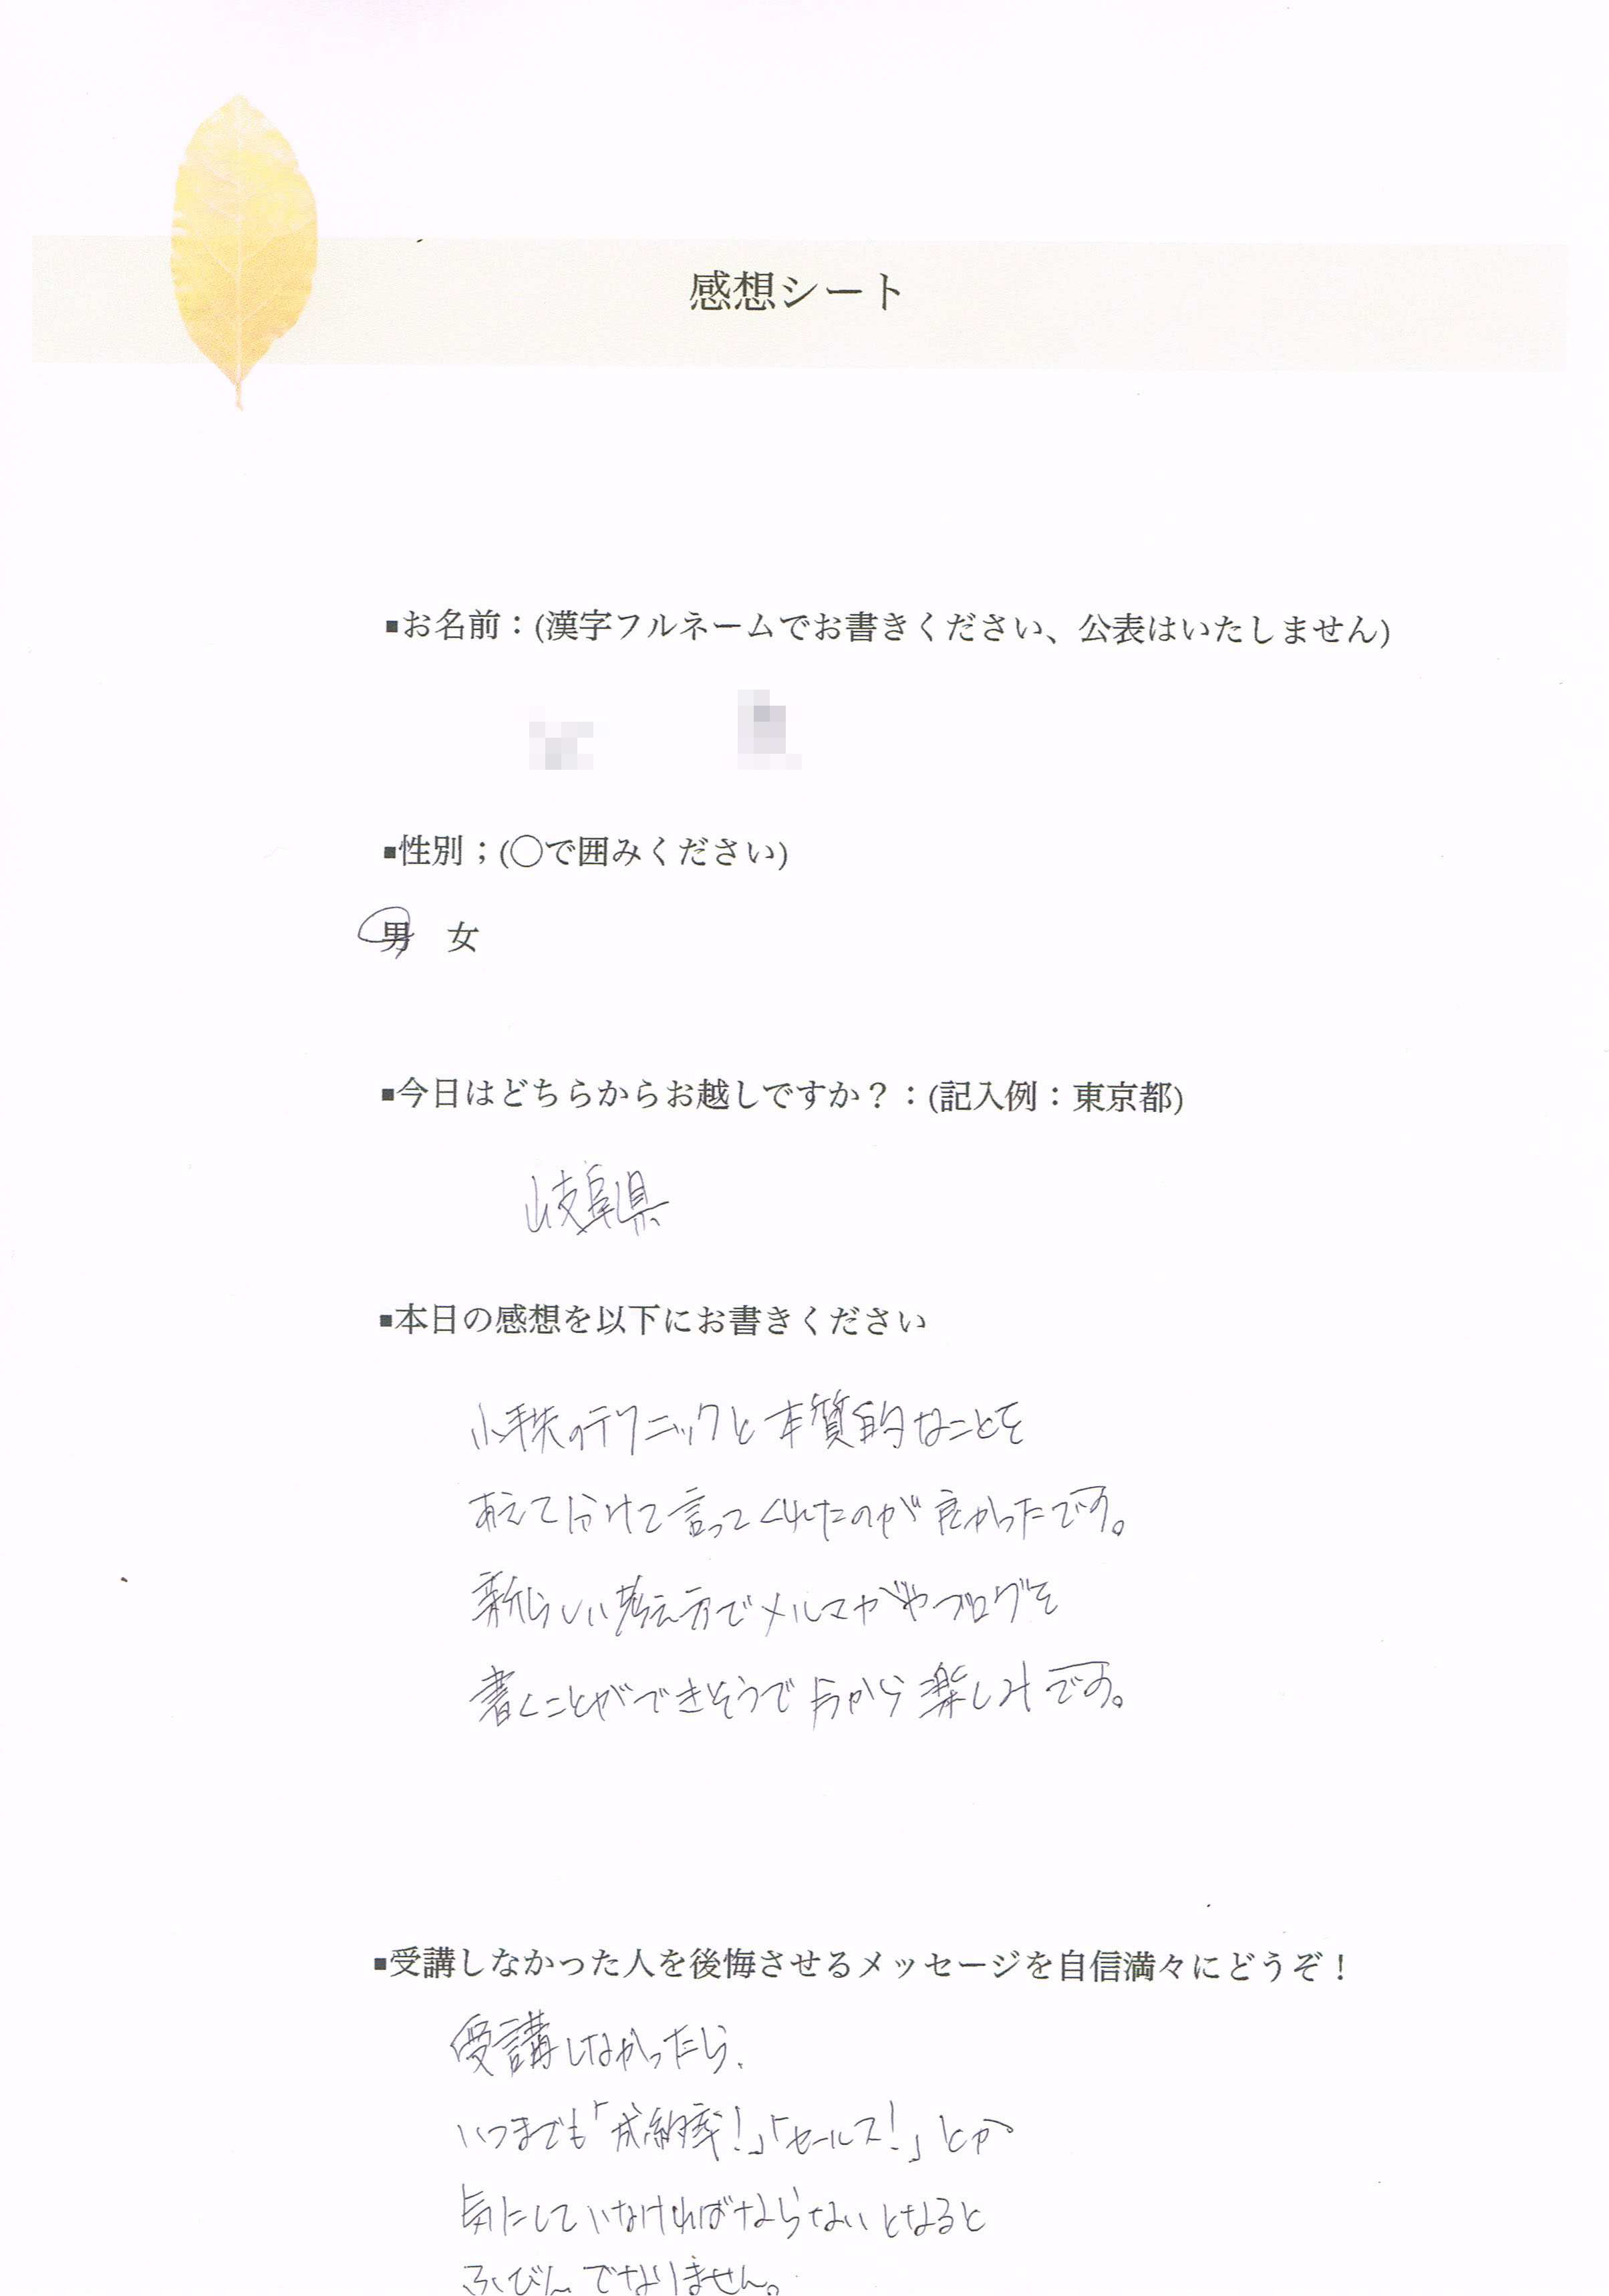 感想シート
■お名前：(漢字フルネームでお書きください、公表はいたしません)
■性別；(〇で囲みください)
男　女
■今日はどちらからお越しですか？：(記入例：東京都)
岐阜県
■本日の感想を以下にお書きください
小手先のテクニックと本質的なことを
あえて分けて言ってくれたのが良かったです。
新らしい考え方でメルマガやブログを
書くことができそうで今から楽しみです。
■受講しなかった人を後悔させるメッセージを自信満々にどうぞ！
受講しなかったら、
いつまでも「成約率！」「セールス！」とか
気にしていなければならないとなると
ふびんでなりません。